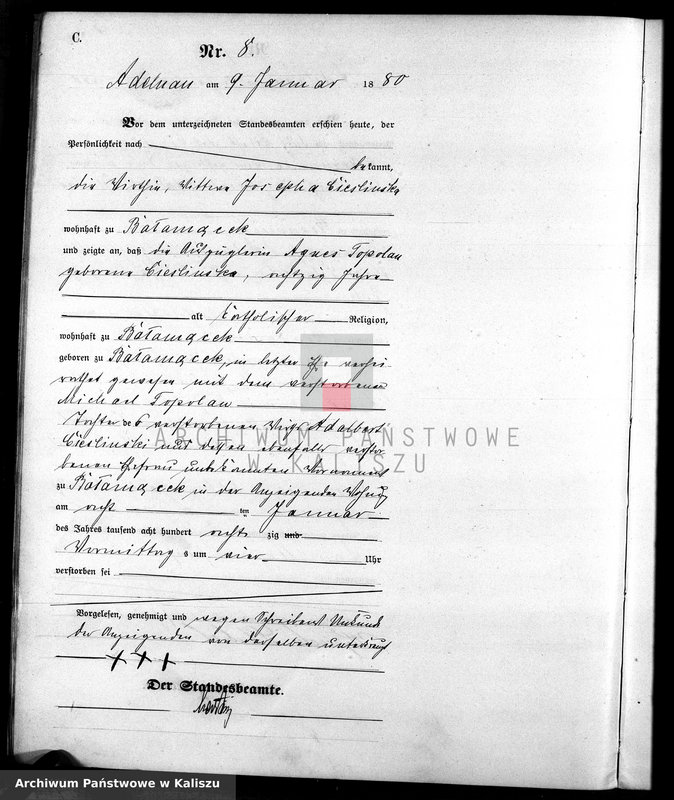 C.
Nr. 8.
Adelnau am 9. Januar 1880
Vor dem unterzeichneten Standesbeamten erschien heute, der
Persönlichkeit nach
bekannt,
die Wirthin, Wittwe Josepha Cieslinska
wohnhaft zu Bałamącek
und zeigte an, daß die Auszüglerin Agnes Topolan
geborene Cieslinska, achtzig Jahre
alt katholischer Religion,
wohnhaft zu Bałamącek
geboren zu Bałamącek, in letzter Ehe verhei-
rathet gewesen mit dem verstorbenen
Michael Topolan
Tochter des verstorbenen Wirths Adalbert
Cieslinski und dessen ebenfalls verstor-
benen Ehefrau unbekannten Vornamens
zu Bałamącek in der Anzeigenden Wohnung
am acht ten Januar
des Jahres tausend acht hundert acht zig und
Vormittags um vier Uhr
verstorben sei
Vorgelesen, genehmigt und wegen Schreibens Unkunde
der Anzeigenden von derselben unterkreuzt
+ + +
Der Standesbeamte.
ARCHIWUM PAŃSTWOWE
W KALISZU
Archiwum Państwowe w Kaliszu